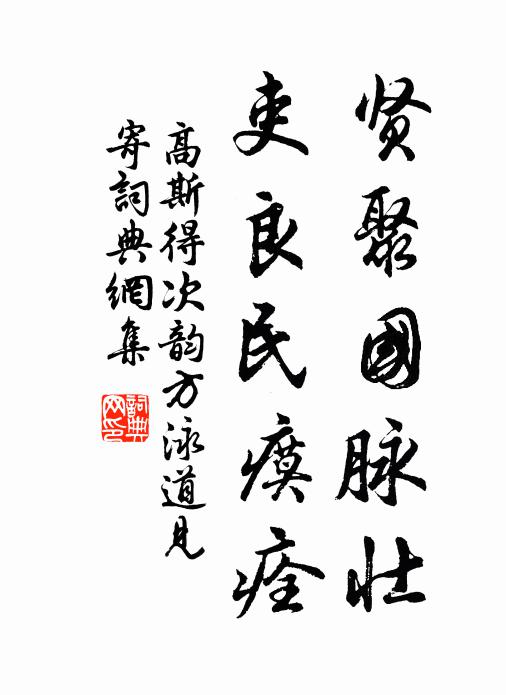 贤聚國脉壮
吏良民瘼痊
高斯得次韵方泳道見
寄詞典網集
詞典網印